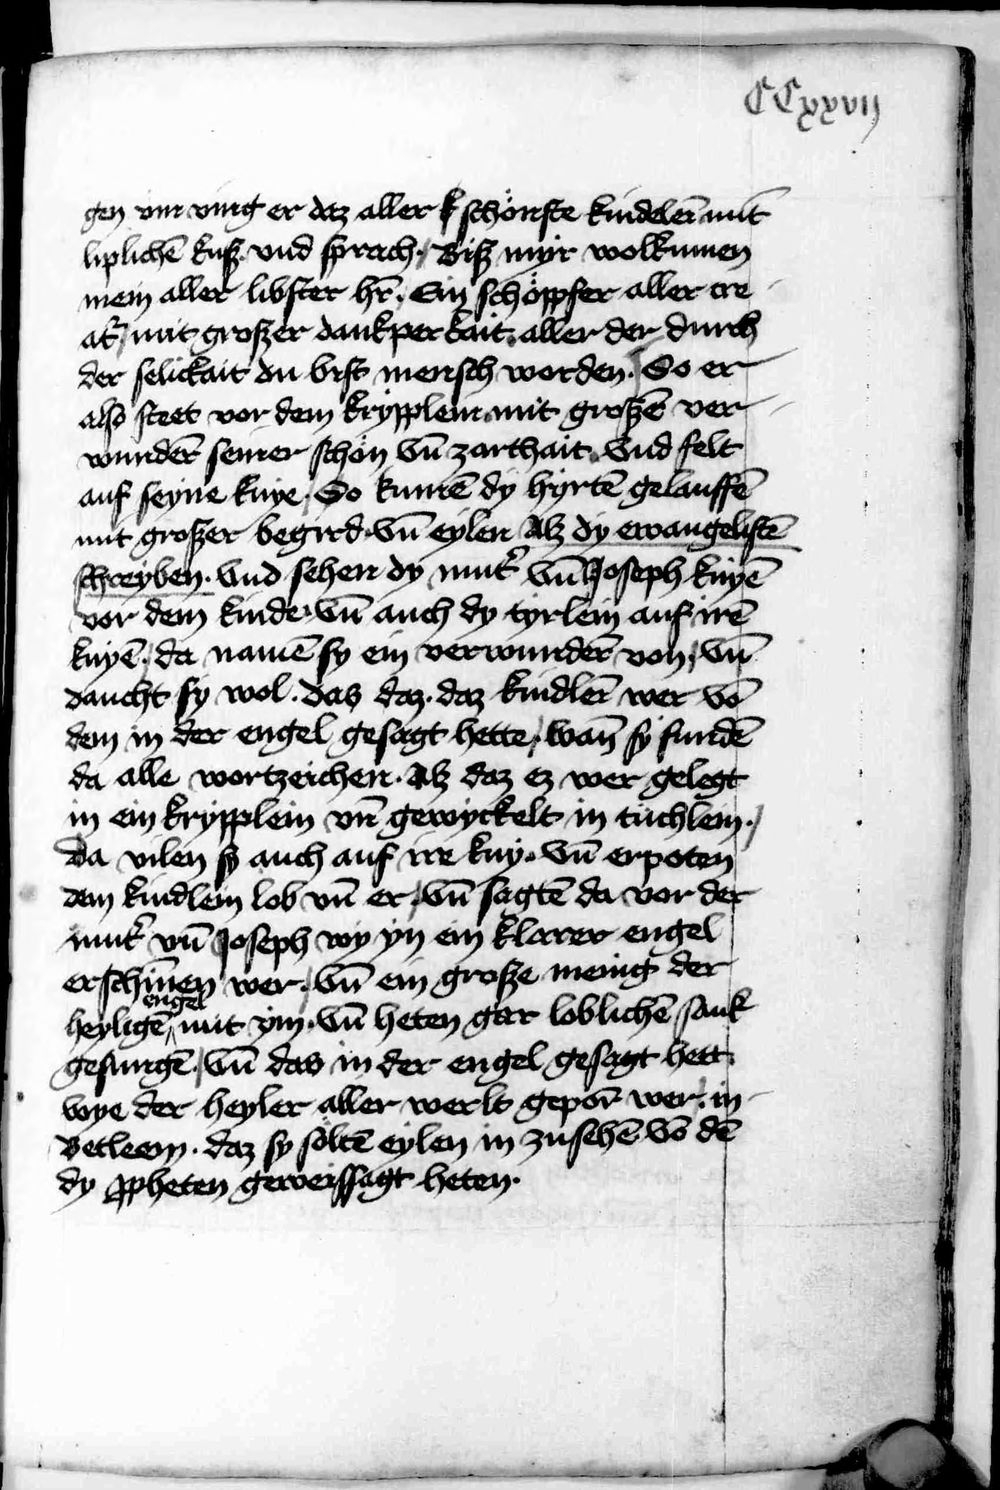 CCxxvij
gen vm ving er daz aller schönste kindelein mit
liplichē kusz. vnd sprach. Bisz myr wolkumen
mein aller libster hr̄. Ein schöppfer aller cre
at᷑ mit groszer dankperkait. aller der durch
der selickait du bist mensch worden. So er
also steet vor dem kripplein. mit groszē ver
wunder̄ seiner schön vn̄ zarthait. vnd felt
auf seyne knye. So kumē dy hyrtē gelauffē
mit groszer begird. vn̄ eylen Alz dy ewangelistē
schreyben. vnd sehen dy mut᷑ vn̄ Joseph knyē
vor dem kinde. vn̄ auch dy tyrlein auf irē
knyē. da namē sy ein verwunder̄ von, vn̄
daucht sy wol. das daz. daz kindlen̄ wer vō
dem in der engel gesagt hette, wan̄ sy fundē
da alle wortzeichen. Alz daz ez wer gelegt
in ein kripplein vn̄ gewyckelt in tüchlein.
Da vilen sy auch auf ire kny. vn̄ erpoten
dem kindlein lob vn̄ er, vn̄ sagtē da vor der
mut᷑ vn̄ Joseph wy yn ein klarer engel
erschinen wer, vn̄ ein grosze menig der
engel
heyligē mit ym. vn̄ heten gar loblichē sank
gesungē, vn̄ das in der engel gesagt hett.
wye der heyler aller werlt gepor̄ wer. in
Betleem. daz sy söltē eylen in zusehē vō dē
dy ꝓpheten geweissagt heten.